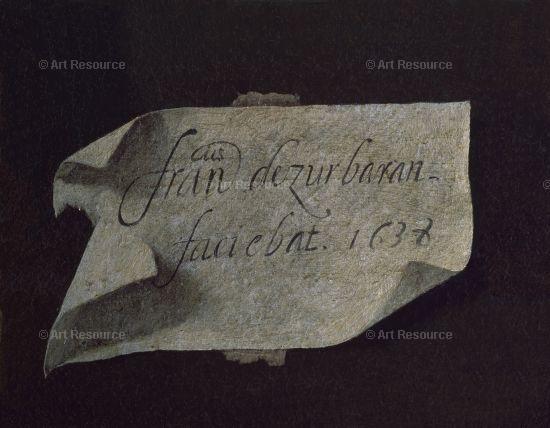 © Art Resource © Art Resource
franᶜᵘˢ dezurbaran-
faciebat. 1638
© Art Resource © Art Resource